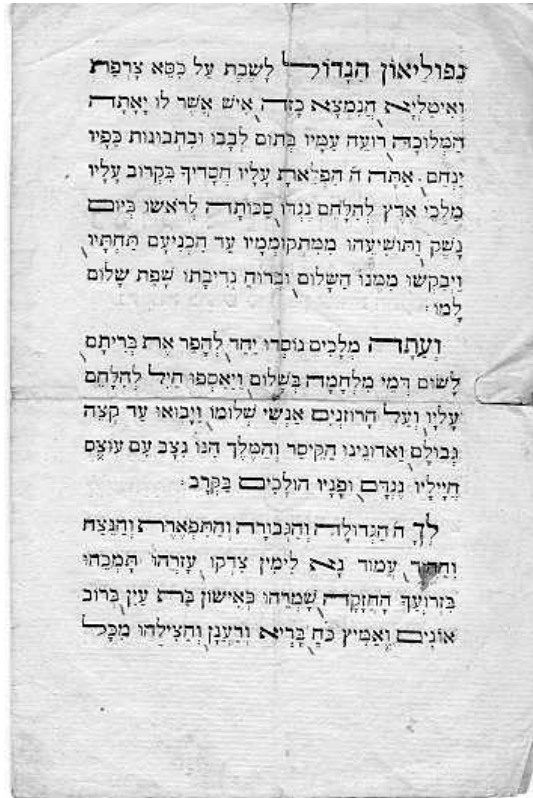 נפוליאון הגדול לשבת על כסא צרפת
ואיטליא הנמצא כזה איש אשר לו יאתה
המלוכה רועה עמיו בתום לבבו ובתבונות כפיו
ינחם. אתה ה הפלאת עליו חסדיך בקרוב עליו
מלכי ארץ להלחם נגדו סכותה לראשו ביום
נשק ותושיעהו ממתקוממיו עד הכניעם תחתיו
ויבקשו ממנו השלום וברוח נדיבתו שפת שלום
למו:
ועתה מלכים נוסדו יחד להפר את בריתם
לשום דמי מלחמה בשלום ויאספו חיל להלחם
עליו ועל הרוזנים אנשי שלומו ויבואו עד קצה
גבולם ואדונינו הקיסר והמלך הנו נצב עם עוצם
חייליו נגדם ופניו הולכים בקרב:
לך ה הגדולה והגבורה והתפארת והנצח
וההוד, עמוד נא לימין צדקו עזרהו תמכהו
בזרועך החזקה שמרהו כאישון בת עין ברוב
אונים ואמיץ כח בריא ורענן והצילהו מכל